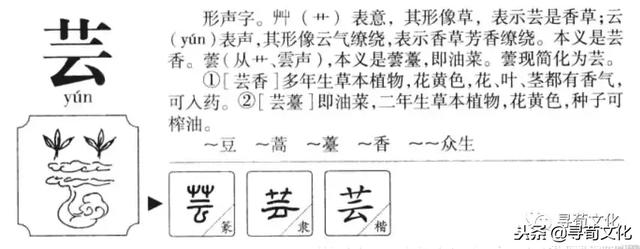 芸
yún
形声字。艸（艹）表意，其形像草，表示芸是香草；云
（yún）表声，其形像云气缭绕，表示香草芳香缭绕。本义是芸
香。蕓（从艹、雲声），本义是蕓薹，即油菜。蕓现简化为芸。
①［芸香］多年生草本植物，花黄色，花、叶、茎都有香气，
可入药。②［芸薹］即油菜，二年生草本植物，花黄色，种子可
榨油。
～豆 ～蒿 ～薹 ～香 ～～众生
芸 篆
芸 隶
芸 楷
寻荀文化
头条@寻荀文化